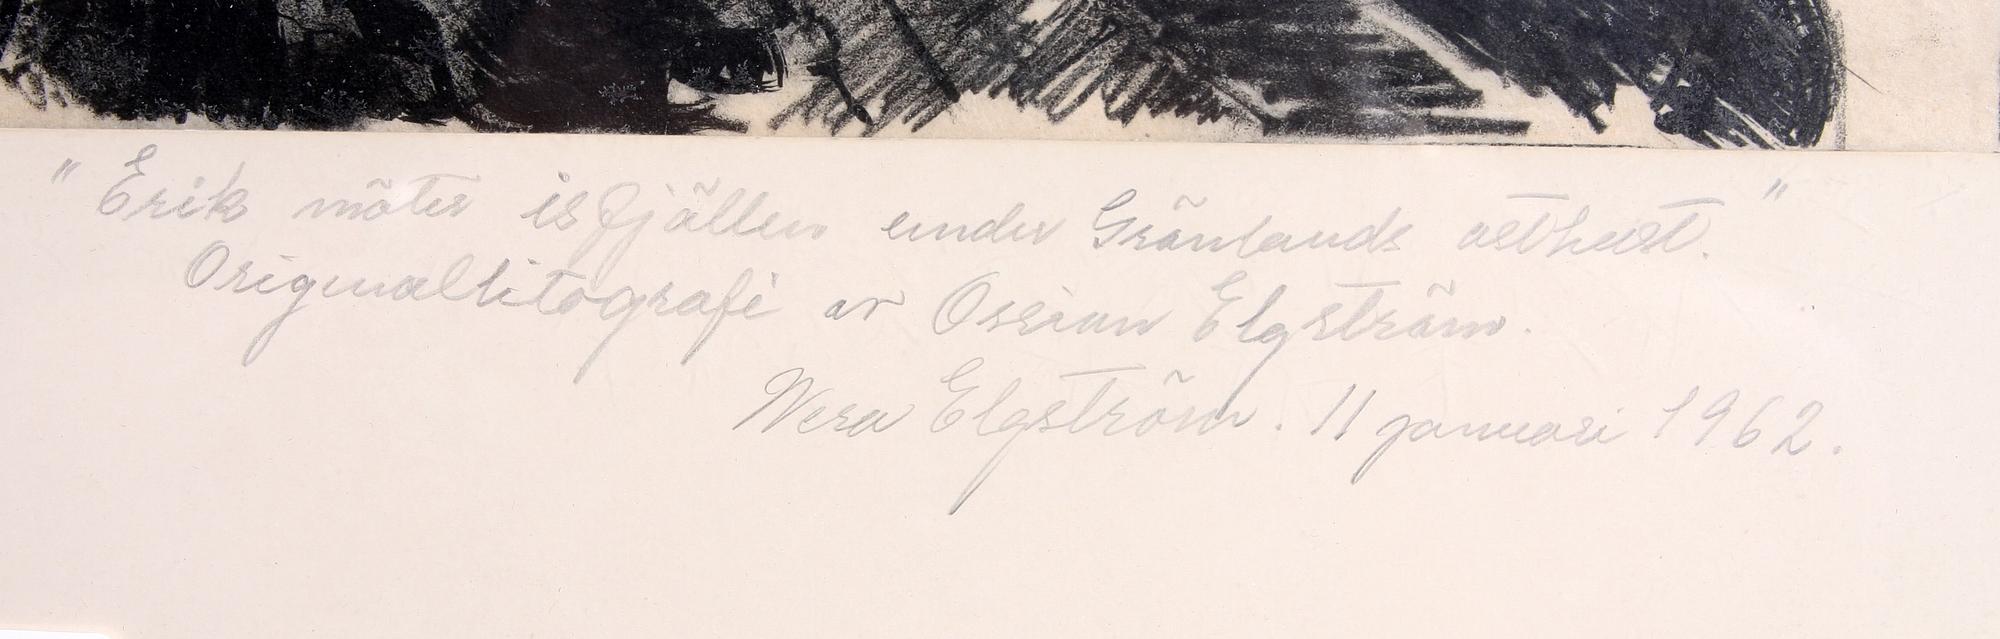 "Erik möter isfjällen under Grönlands ostkust."
Originallitografi av Ossian Elgström.
Wera Elgström. 11 januari 1962.